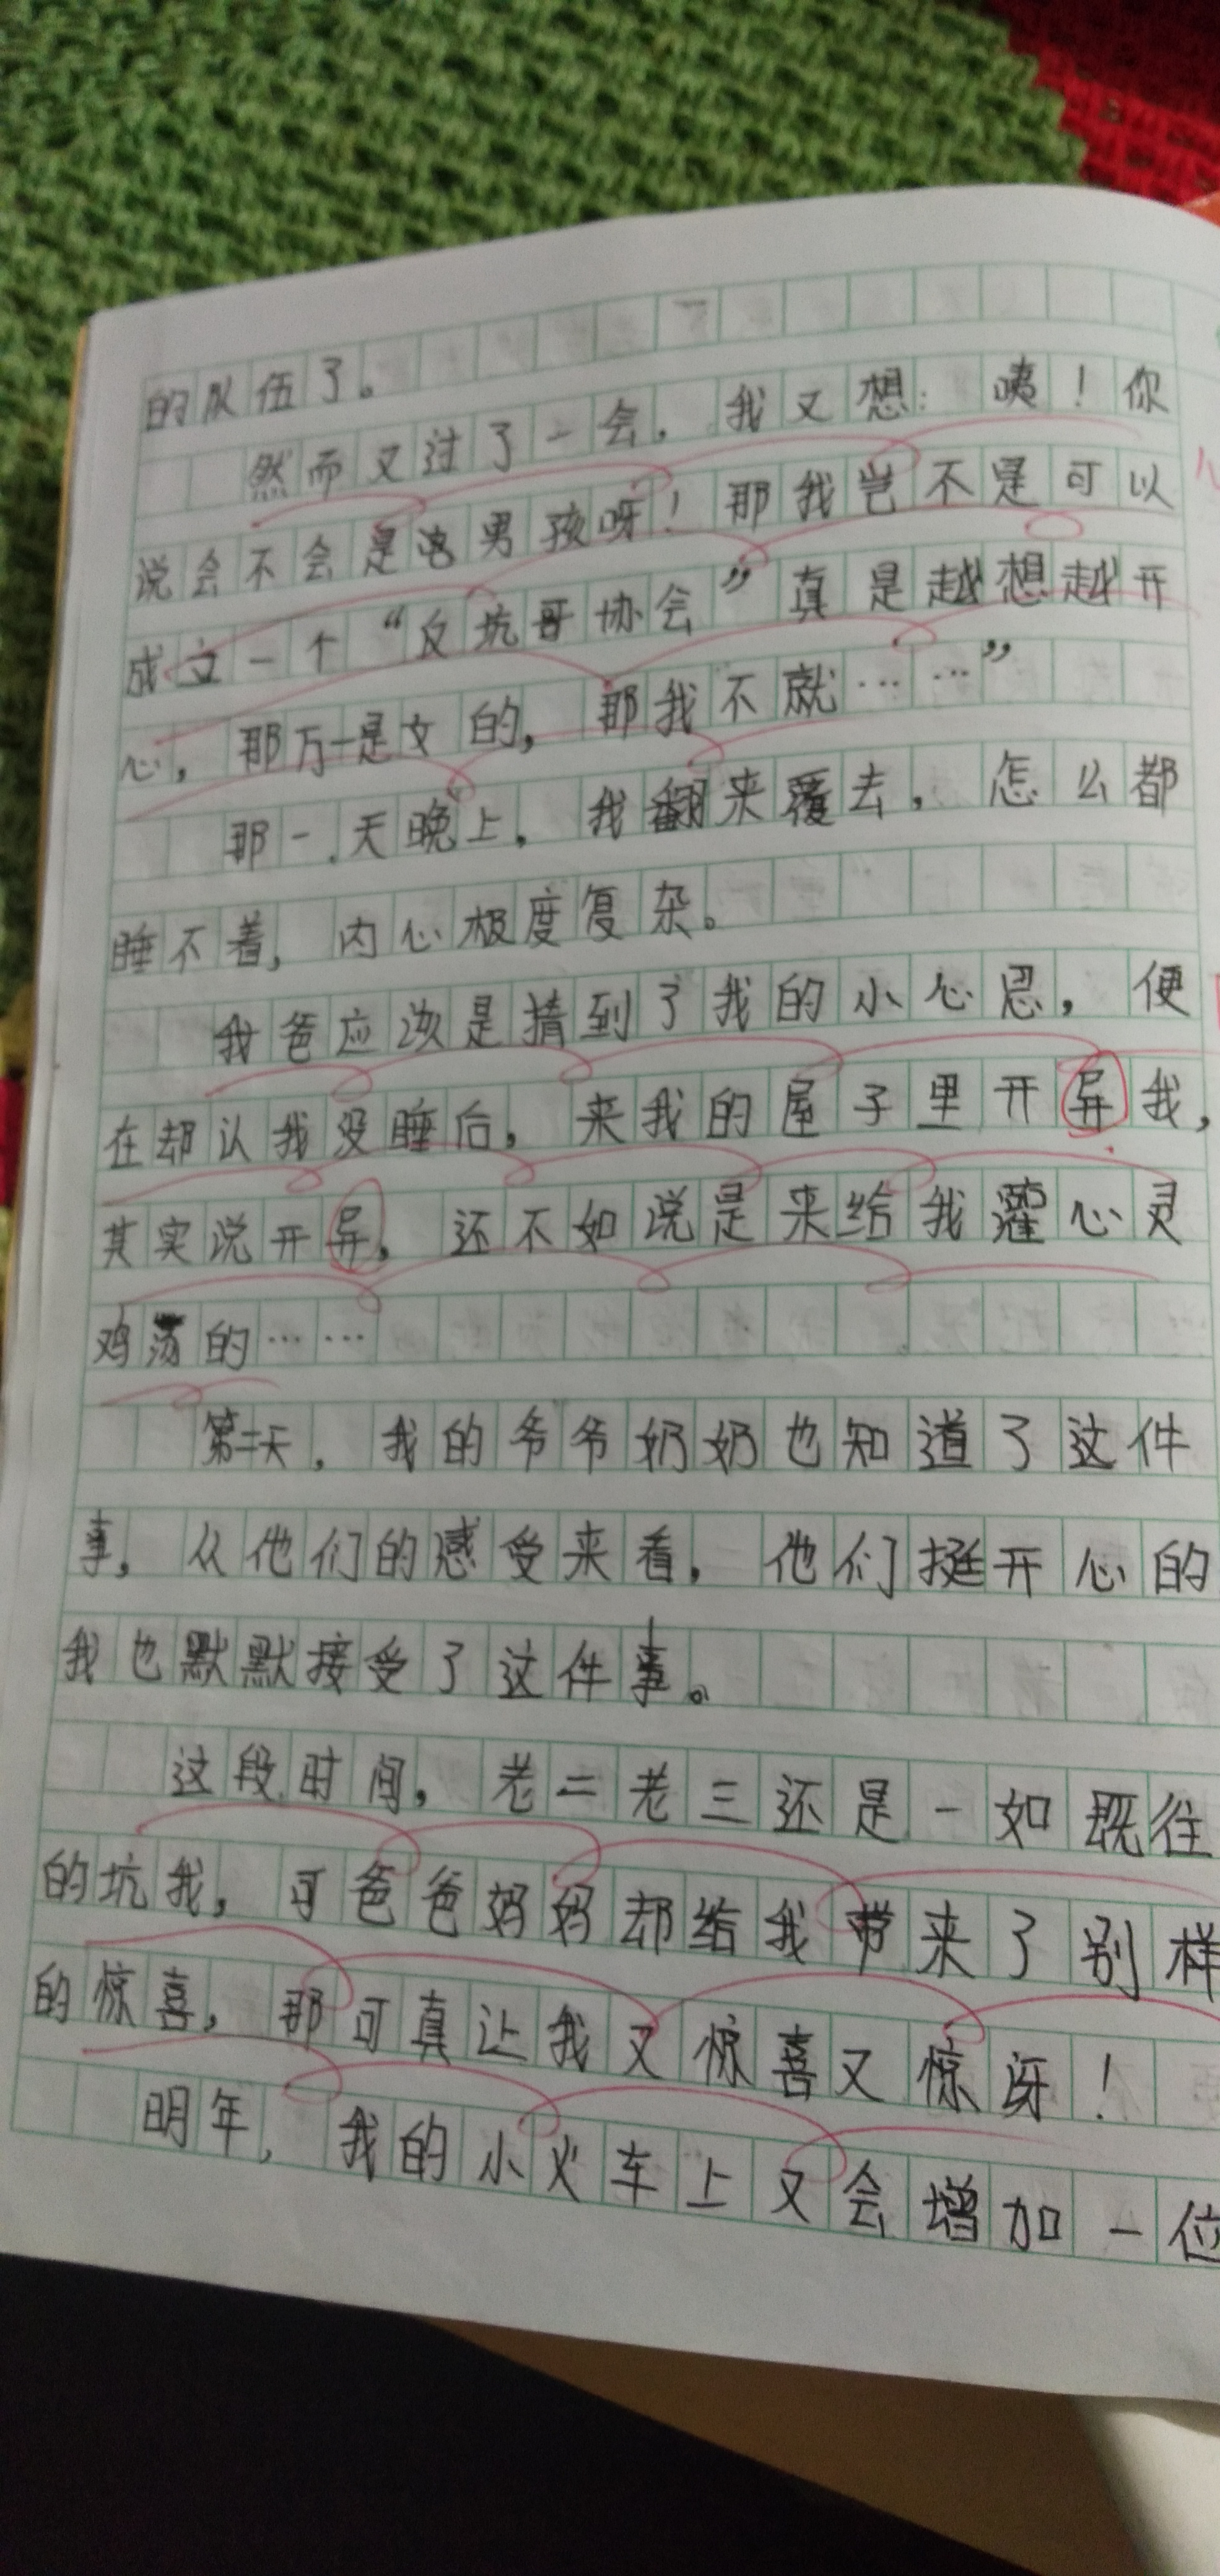 的队伍了。
然而又过了一会，我又想：咦！你
说会不会是个男孩呀！那我岂不是可以
成立一个“反坑哥协会”真是越想越开
心，那万一是女的，那我不就……”
那一天晚上，我翻来覆去，怎么都
睡不着，内心极度复杂。
我爸应该是猜到了我的小心思，便
在却认我没睡后，来我的屋子里开异我，
其实说开异，还不如说是来给我灌心灵
鸡汤的……
第二天，我的爷爷奶奶也知道了这件
事，从他们的感受来看，他们挺开心的
我也默默接受了这件事。
这段时间，老二老三还是一如既往
的坑我，可爸爸妈妈却给我带来了别样
的惊喜，那可真让我又惊喜又惊讶！
明年，我的小火车上又会增加一位